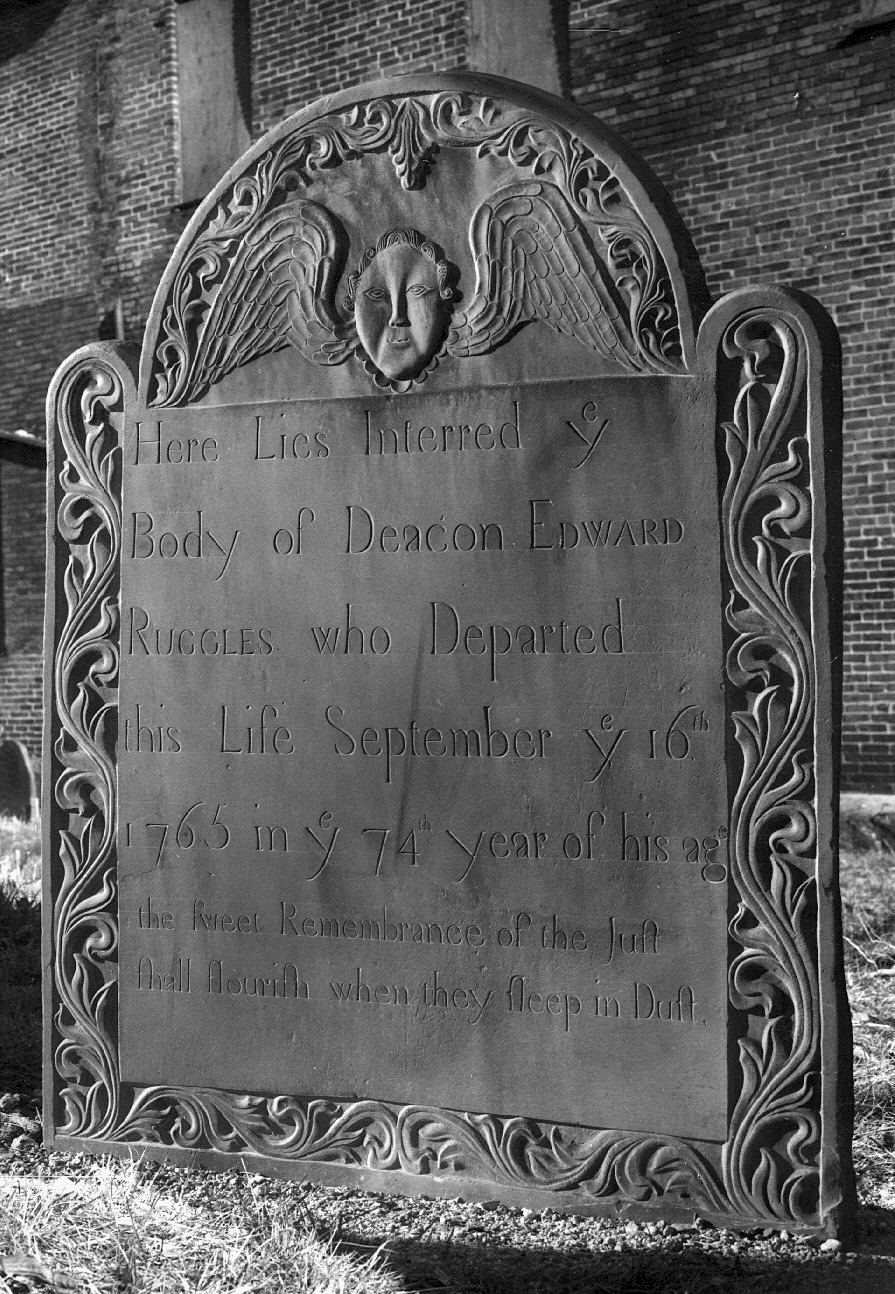 Here Lies Interred yᵉ
Body of Deacon EDWARD
RUGGLES who Departed
this Life September yᵉ 16ᵗʰ
1765 in yᵉ 74ᵗʰ year of his age
the ſweet Remembrance of the Juſt
ſhall flouriſh when they ſleep in Duſt.